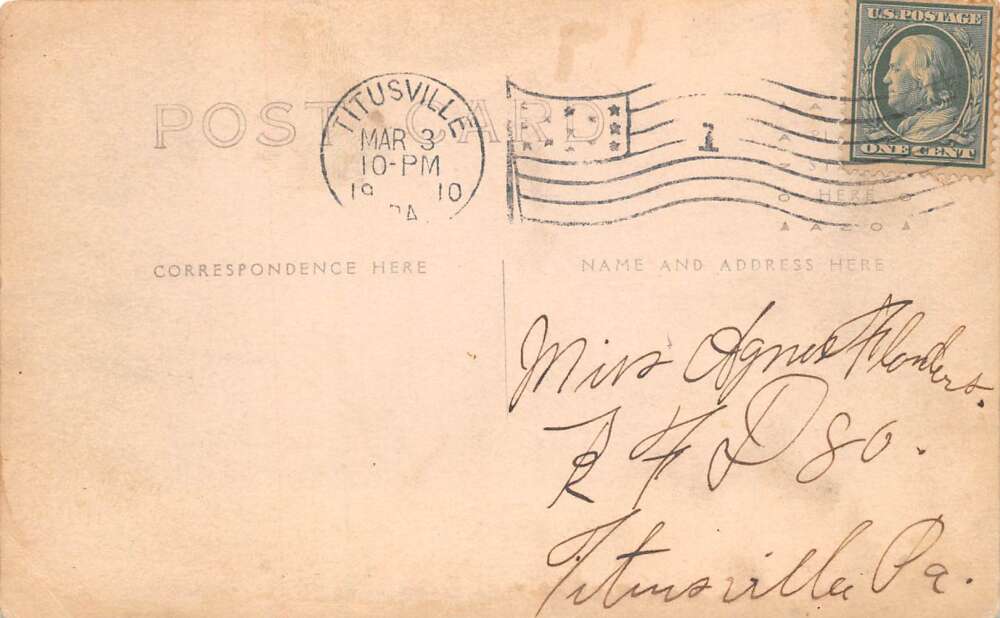 U.S. POSTAGE
ONE CENT
POST CARD
TITUSVILLE
MAR 3
10-PM
19 10
PA
1
HERE
AZO
CORRESPONDENCE HERE
NAME AND ADDRESS HERE
Miss Agnes Flanders.
R F D 80.
Titusville Pa.